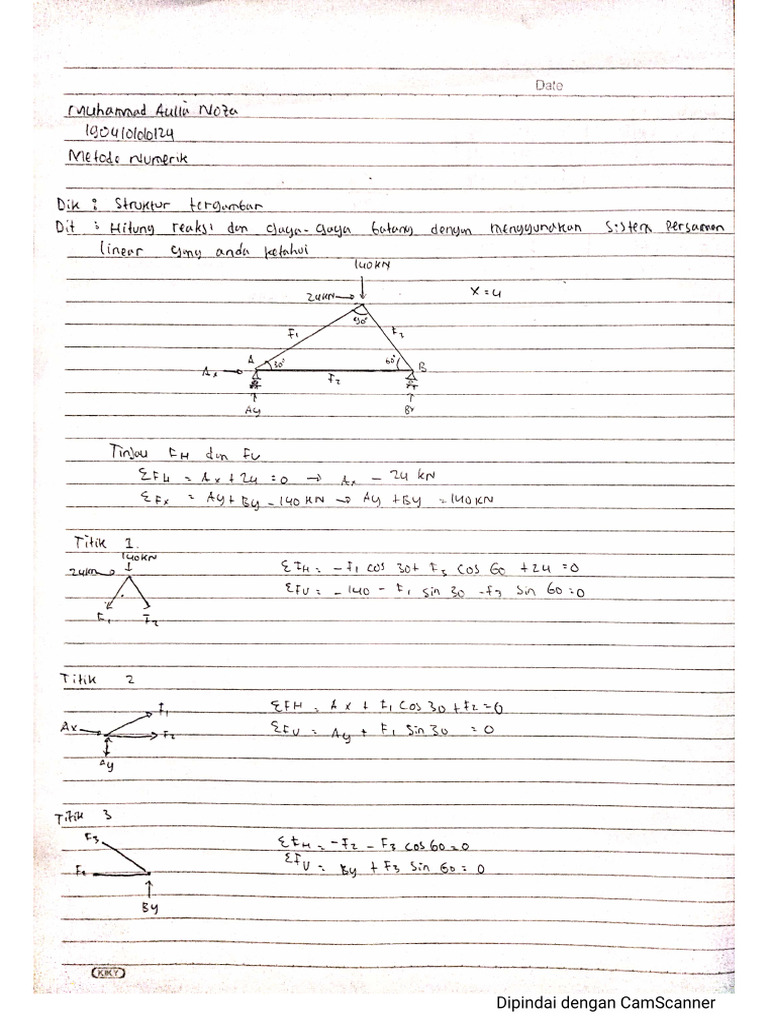 Date
Muhammad Aulia Noza
190410100124
Metode Numerik
Dik : Struktur tergambar
Dit : Hitung reaksi dan gaya-gaya batang dengan menggunakan sistem persamaan
linear yang anda ketahui
140 KN
24 KN
X = 4
90°
F1
F3
A
30°
60°
B
Ax
F2
Ay
By
Tinjau FH dan FV
ΣFH = Ax + 24 = 0 → Ax - 24 KN
ΣFx = Ay + By - 140 KN → Ay + By = 140 KN
Titik 1.
140 KN
24 KN
F1 F2
ΣFH = -F1 cos 30 + F3 cos 60 + 24 = 0
ΣFV = -140 - F1 sin 30 - F3 sin 60 = 0
Titik 2
F1
Ax
F2
Ay
ΣFH = Ax + F1 cos 30 + F2 = 0
ΣFV = Ay + F1 sin 30 = 0
Titik 3
F3
F2
By
ΣFH = -F2 - F3 cos 60 = 0
ΣFV = By + F3 sin 60 = 0
KIKY
Dipindai dengan CamScanner